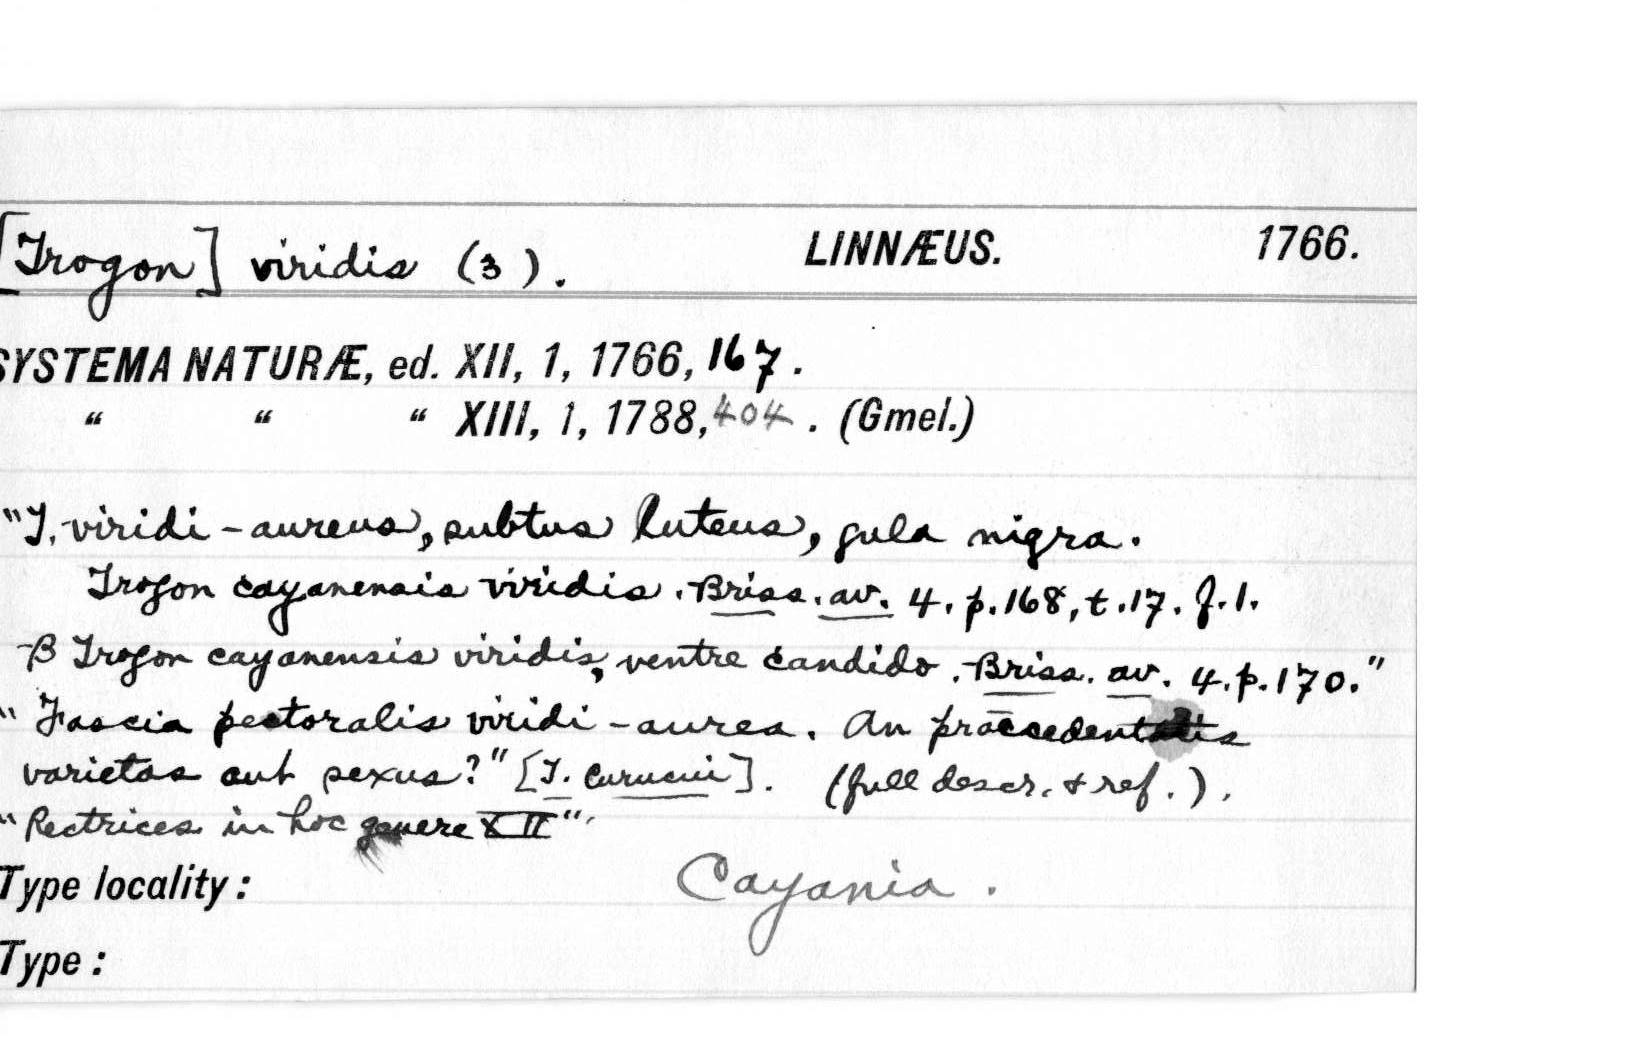 [Trogon] viridis (3). LINNÆUS. 1766.
SYSTEMA NATURÆ, ed. XII, 1, 1766, 167.
“ “ “ XIII, 1, 1788, 404. (Gmel.)
"T. viridi-aureus, subtus luteus, gula nigra.
Trogon cayanensis viridis. Briss. av. 4. p. 168, t. 17. f. 1.
β Trogon cayanensis viridis, ventre candido. Briss. av. 4. p. 170."
"Fascia pectoralis viridi-aurea. An praecedentis
varietas aut sexus?" [T. Curucui]. (full descr. & ref.).
"Rectrices in hoc genere XII".
Type locality: Cayania.
Type: